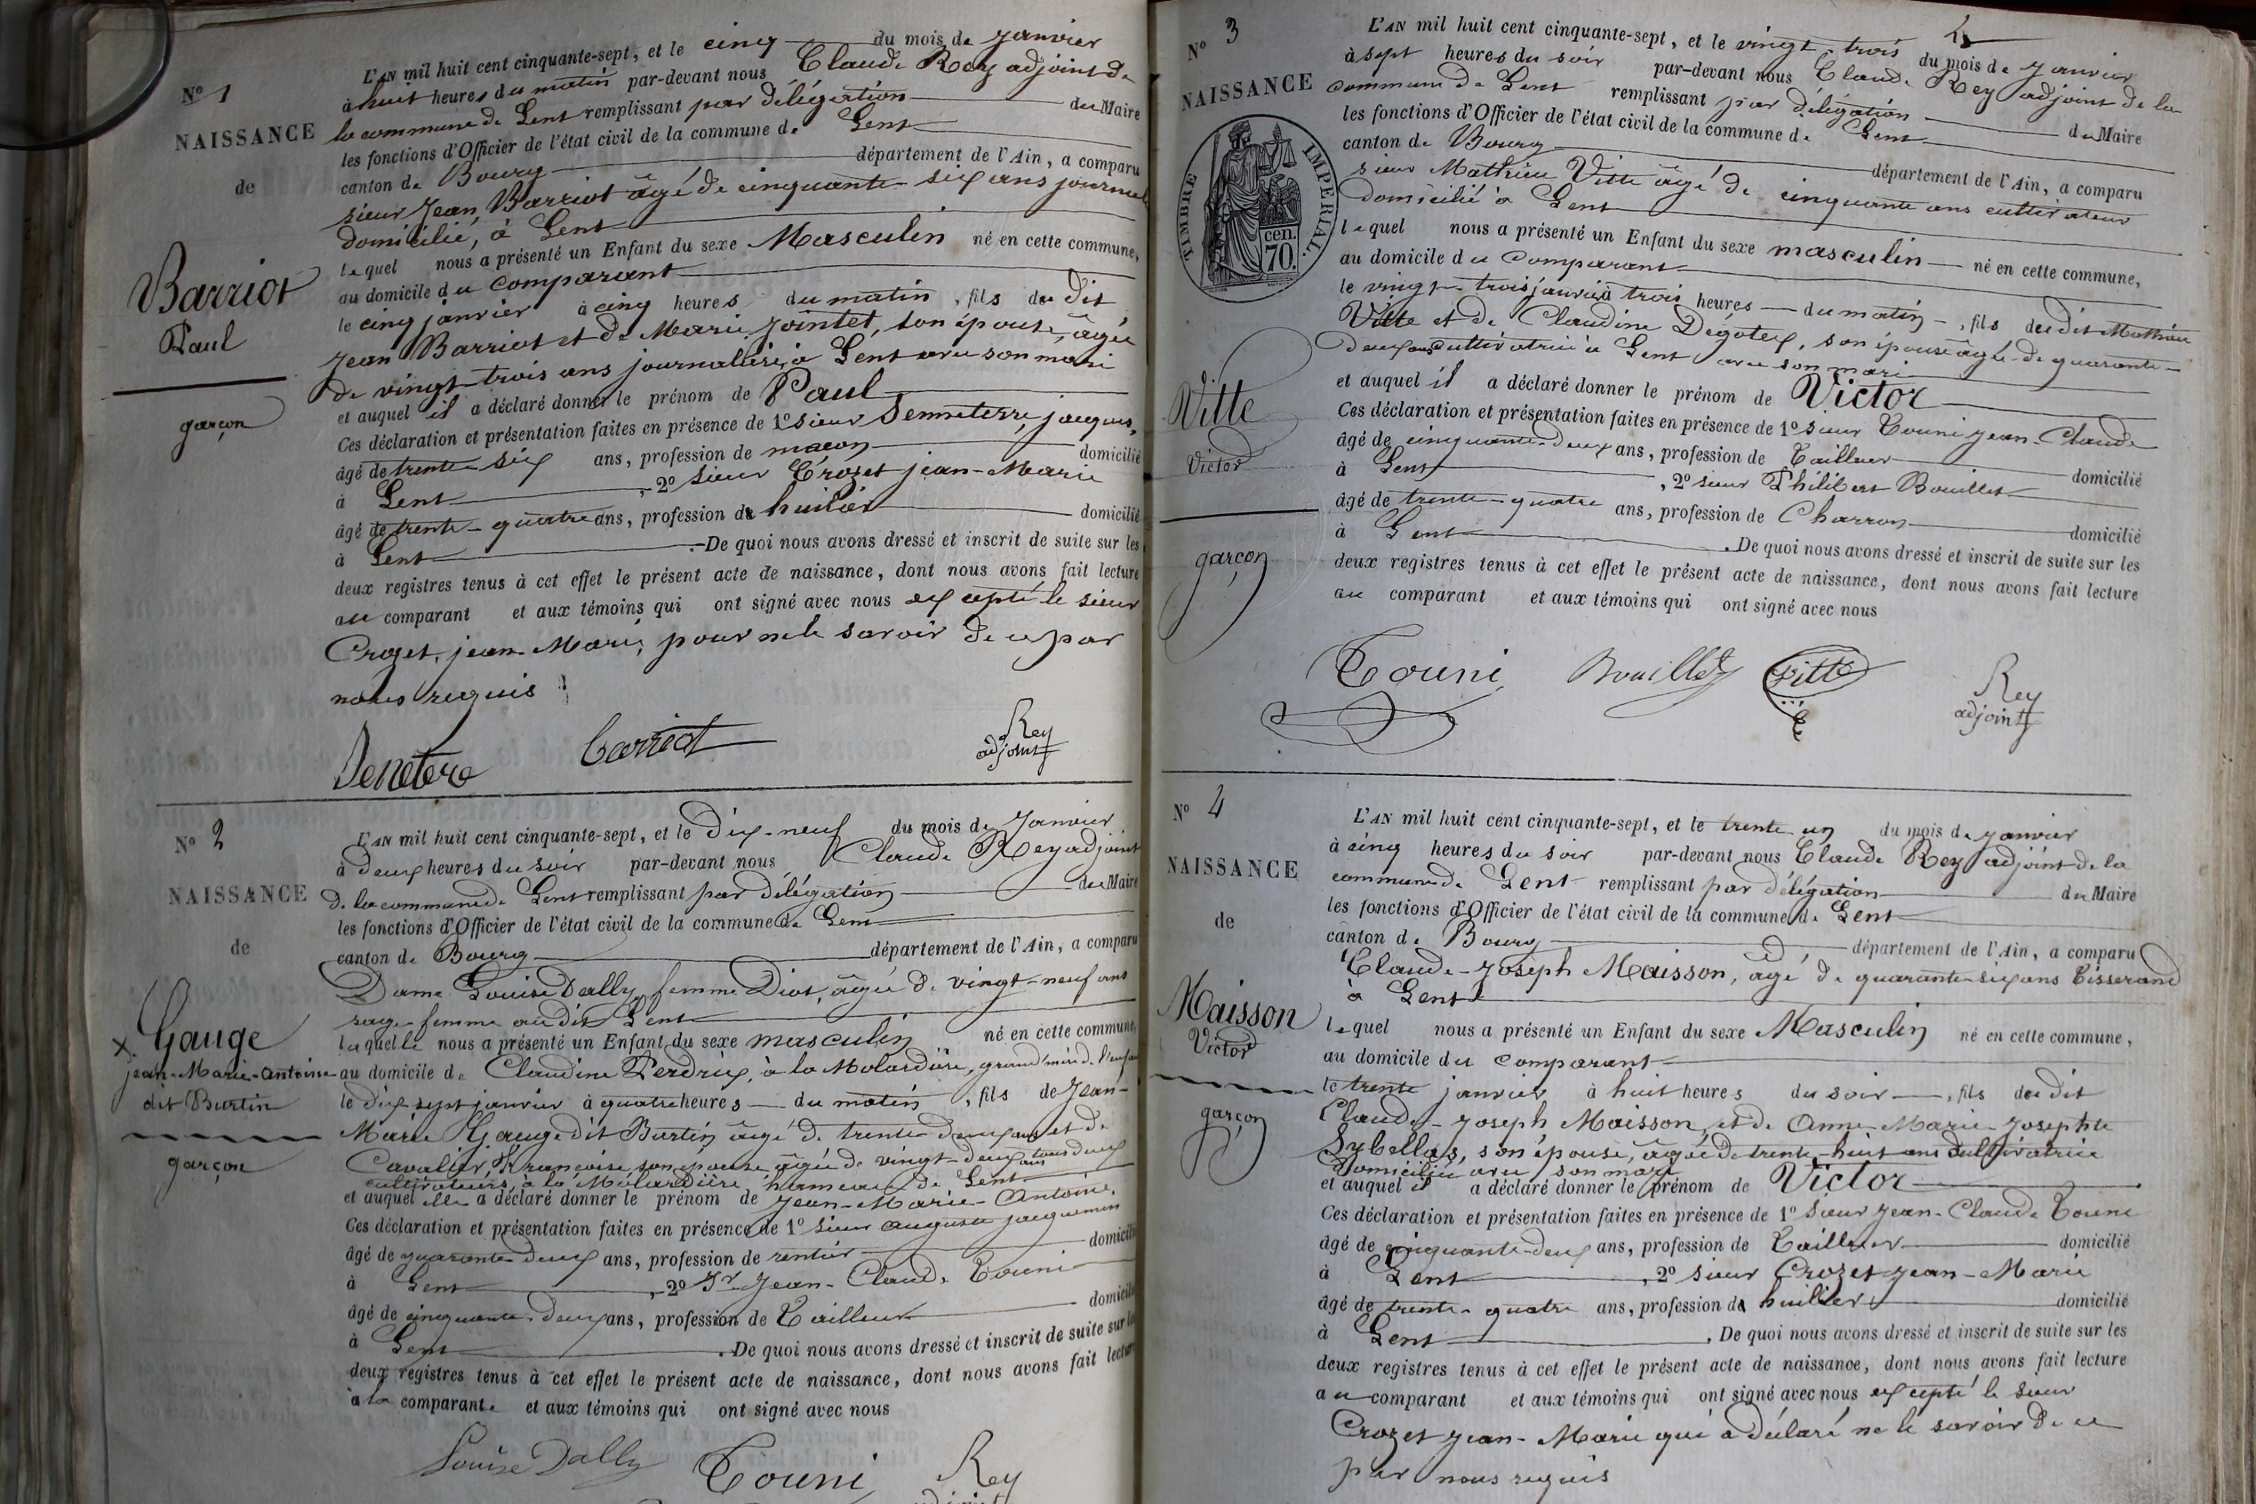 Nº 1
NAISSANCE
de
Barriot
Paul
garçon
L'AN mil huit cent cinquante-sept, et le cinq du mois de janvier
à huit heures du matin par-devant nous Claude Rey adjoint de
la commune de Lent remplissant par délégation du Maire
les fonctions d'Officier de l'état civil de la commune de Lent
canton de Bourg département de l'Ain, a comparu
sieur Jean Barriot âgé de cinquante-six ans journal
domicilié, à Lent
lequel nous a présenté un Enfant du sexe Masculin né en cette commune,
au domicile du comparant
le cinq janvier à cinq heures du matin, fils du dit
Jean Barriot et de Marie Jointet, son épouse, âgée
de vingt-trois ans journalière, à Lent avec son mari
et auquel il a déclaré donner le prénom de Paul
Ces déclaration et présentation faites en présence de 1º sieur Senneterre, jacques,
âgé de trente-six ans, profession de maçon domicilié
à Lent, 2º sieur Crozet jean-Marie
âgé de trente-quatre ans, profession de huilier domicilié
à Lent. De quoi nous avons dressé et inscrit de suite sur les
deux registres tenus à cet effet le présent acte de naissance, dont nous avons fait lecture
au comparant et aux témoins qui ont signé avec nous excepté le sieur
Crozet, jean-Marie, pour ne le savoir de ce par
nous requis
Senetere Barriot Rey
adjoint
Nº 2
NAISSANCE
de
x Gauge
jean-Marie-Antoine
dit Burtin
garçon
L'AN mil huit cent cinquante-sept, et le dix-neuf du mois de janvier
à deux heures du soir par-devant nous Claude Rey adjoint
de la commune de Lent remplissant par délégation du Maire
les fonctions d'Officier de l'état civil de la commune de Lent
canton de Bourg département de l'Ain, a comparu
Dame Louise Dally femme Diot, âgée de vingt-neuf ans
sage-femme au dit Lent
laquelle nous a présenté un Enfant du sexe masculin né en cette commune,
au domicile de Claudine Perdrix, à la Molardière, grand'mère de l'enfant
le dix-sept janvier à quatre heures du matin, fils de Jean-
Marie Gauge dit Burtin âgé de trente-deux ans et de
Cavalier, Françoise, son épouse âgée de vingt-deux ans tous deux
cultivateurs, à la Molardière, hameau de Lent
et auquel elle a déclaré donner le prénom de Jean-Marie-Antoine,
Ces déclaration et présentation faites en présence de 1º sieur auguste jacquemin
âgé de quarante-deux ans, profession de rentier domicilié
à Lent, 2º Sr Jean-Claude Touni
âgé de cinquante-deux ans, profession de Tailleur domicilié
à Lent. De quoi nous avons dressé et inscrit de suite sur les
deux registres tenus à cet effet le présent acte de naissance, dont nous avons fait lecture
à la comparante et aux témoins qui ont signé avec nous
Louise Dally Touni Rey
adjoint
4
Nº 3
NAISSANCE
TIMBRE IMPÉRIAL.
cen.
70.
Vitte
Victor
garçon
L'AN mil huit cent cinquante-sept, et le vingt-trois du mois de janvier
à sept heures du soir par-devant nous Claude Rey adjoint de la
commune de Lent remplissant par délégation du Maire
les fonctions d'Officier de l'état civil de la commune de Lent
canton de Bourg département de l'Ain, a comparu
sieur Mathieu Vitte âgé de cinquante ans cultivateur
domicilié à Lent
lequel nous a présenté un Enfant du sexe masculin né en cette commune,
au domicile du Comparant
le vingt-trois janvier à trois heures du matin, fils du dit Mathieu
Vitte et de Claudine Dégotex, son épouse âgée de quarante-
deux ans cultivatrice à Lent avec son mari
et auquel il a déclaré donner le prénom de Victor
Ces déclaration et présentation faites en présence de 1º sieur Touni jean-Claude
âgé de cinquante-deux ans, profession de Tailleur domicilié
à Lent, 2º sieur Philibert Bouillet
âgé de trente-quatre ans, profession de Charron domicilié
à Lent. De quoi nous avons dressé et inscrit de suite sur les
deux registres tenus à cet effet le présent acte de naissance, dont nous avons fait lecture
au comparant et aux témoins qui ont signé avec nous
Touni Bouillet Vitte Rey
adjoint
Nº 4
NAISSANCE
de
Maisson
Victor
garçon
L'AN mil huit cent cinquante-sept, et le trente un du mois de janvier
à cinq heures du soir par-devant nous Claude Rey adjoint de la
commune de Lent remplissant par délégation du Maire
les fonctions d'Officier de l'état civil de la commune de Lent
canton de Bourg département de l'Ain, a comparu
Claude-Joseph Maisson, âgé de quarante-six ans Tisserand
à Lent
lequel nous a présenté un Enfant du sexe Masculin né en cette commune,
au domicile du comparant
le trente janvier à huit heures du soir, fils du dit
Claude-Joseph Maisson, et de Anne-Marie-Josephte
Sybellas, son épouse, âgée de trente-huit ans Cultivatrice
domiciliée avec son mari
et auquel il a déclaré donner le prénom de Victor
Ces déclaration et présentation faites en présence de 1º sieur Jean-Claude Touni
âgé de cinquante-deux ans, profession de Tailleur domicilié
à Lent, 2º sieur Crozet jean-Marie
âgé de trente-quatre ans, profession de huilier domicilié
à Lent. De quoi nous avons dressé et inscrit de suite sur les
deux registres tenus à cet effet le présent acte de naissance, dont nous avons fait lecture
au comparant et aux témoins qui ont signé avec nous excepté le sieur
Crozet jean-Marie qui a déclaré ne le savoir de ce
par nous requis